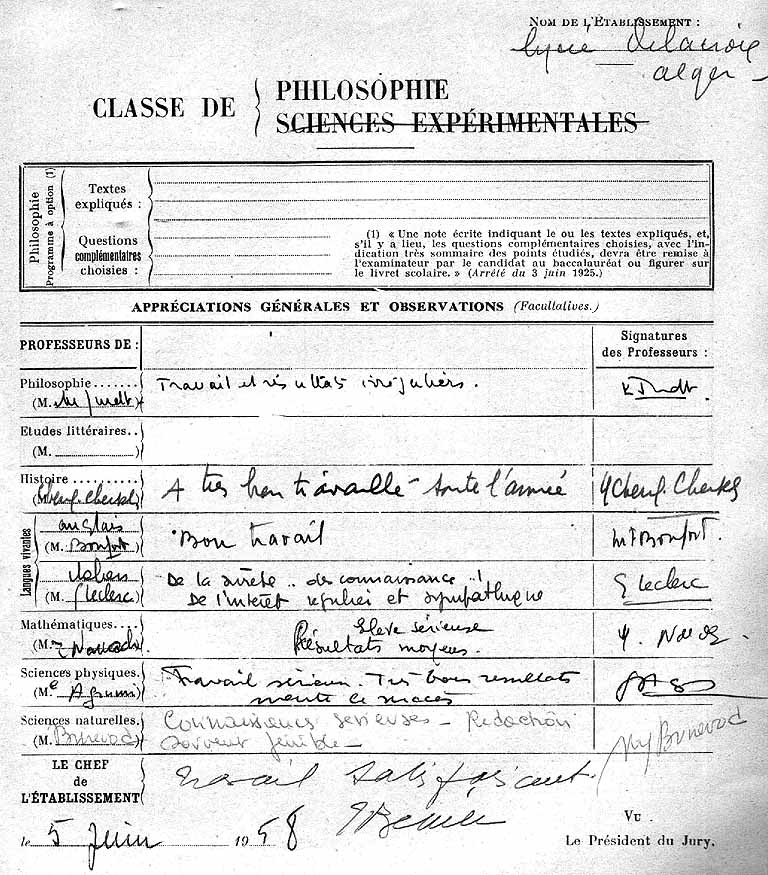 NOM DE L'ÉTABLISSEMENT :
lycée Delacroix
alger -
CLASSE DE { PHILOSOPHIE
SCIENCES EXPÉRIMENTALES
Philosophie
Programme à option (1)
Textes
expliqués :
Questions
complémentaires
choisies :
(1) « Une note écrite indiquant le ou les textes expliqués, et,
s'il y a lieu, les questions complémentaires choisies, avec l'in-
dication très sommaire des points étudiés, devra être remise à
l'examinateur par le candidat au baccalauréat ou figurer sur
le livret scolaire. » (Arrêté du 3 juin 1925.)
APPRÉCIATIONS GÉNÉRALES ET OBSERVATIONS (Facultatives.)
PROFESSEURS DE :
Signatures
des Professeurs :
Philosophie.......
(M. )
Travail et résultats irréguliers.
Etudes littéraires..
(M. ............)
Histoire
A très bien travaillé toute l'année
Cherkh
Langues vivantes
anglais
(M. Bonfort)
Bon travail
Bonfort.
italien
(M. Gleclerc)
De la sûreté .. des connaissances ..!
De l'intérêt régulier et sympathique
G leclerc
Mathématiques....
(M. )
Elève sérieuse
Résultats moyens.
Sciences physiques.
(M. )
Travail sérieux. Très bons resultats
mérite le succès
Sciences naturelles.
(M. Brunevod)
Connaissances sérieuses - Rédaction
souvent pénible -
Brunevod
LE CHEF
de
L'ÉTABLISSEMENT
Travail satisfaisant.
le 5 juin 1958
VU
Le Président du Jury.